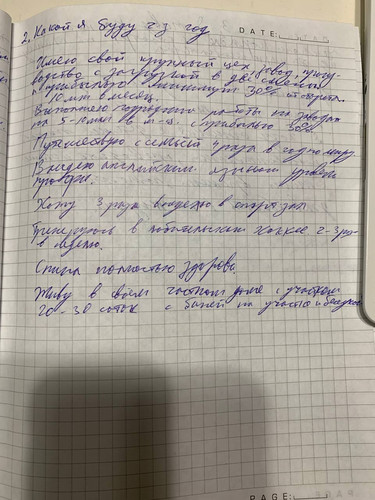 DATE:
2. Какой я буду ч-з год
Имею свой крупный цех, завод, произ-
водство с загрузкой в две смены
с прибылью минимум 30% от оборота.
10 млн в месяц.
Выполняю подрядные работы на заводах
на 5-10 млн в м-ц с прибылью 30%
Путешествую с семьей 4 раза в год по миру.
Владею английским языком уровень
Хожу 3 раза в неделю в спортзал
Тренируюсь в любительском хоккее 2-3 раза
в неделю.
Спина полностью здорова
Живу в своём частном доме с участком
20-30 соток с баней на участке и беседкой
PAGE: